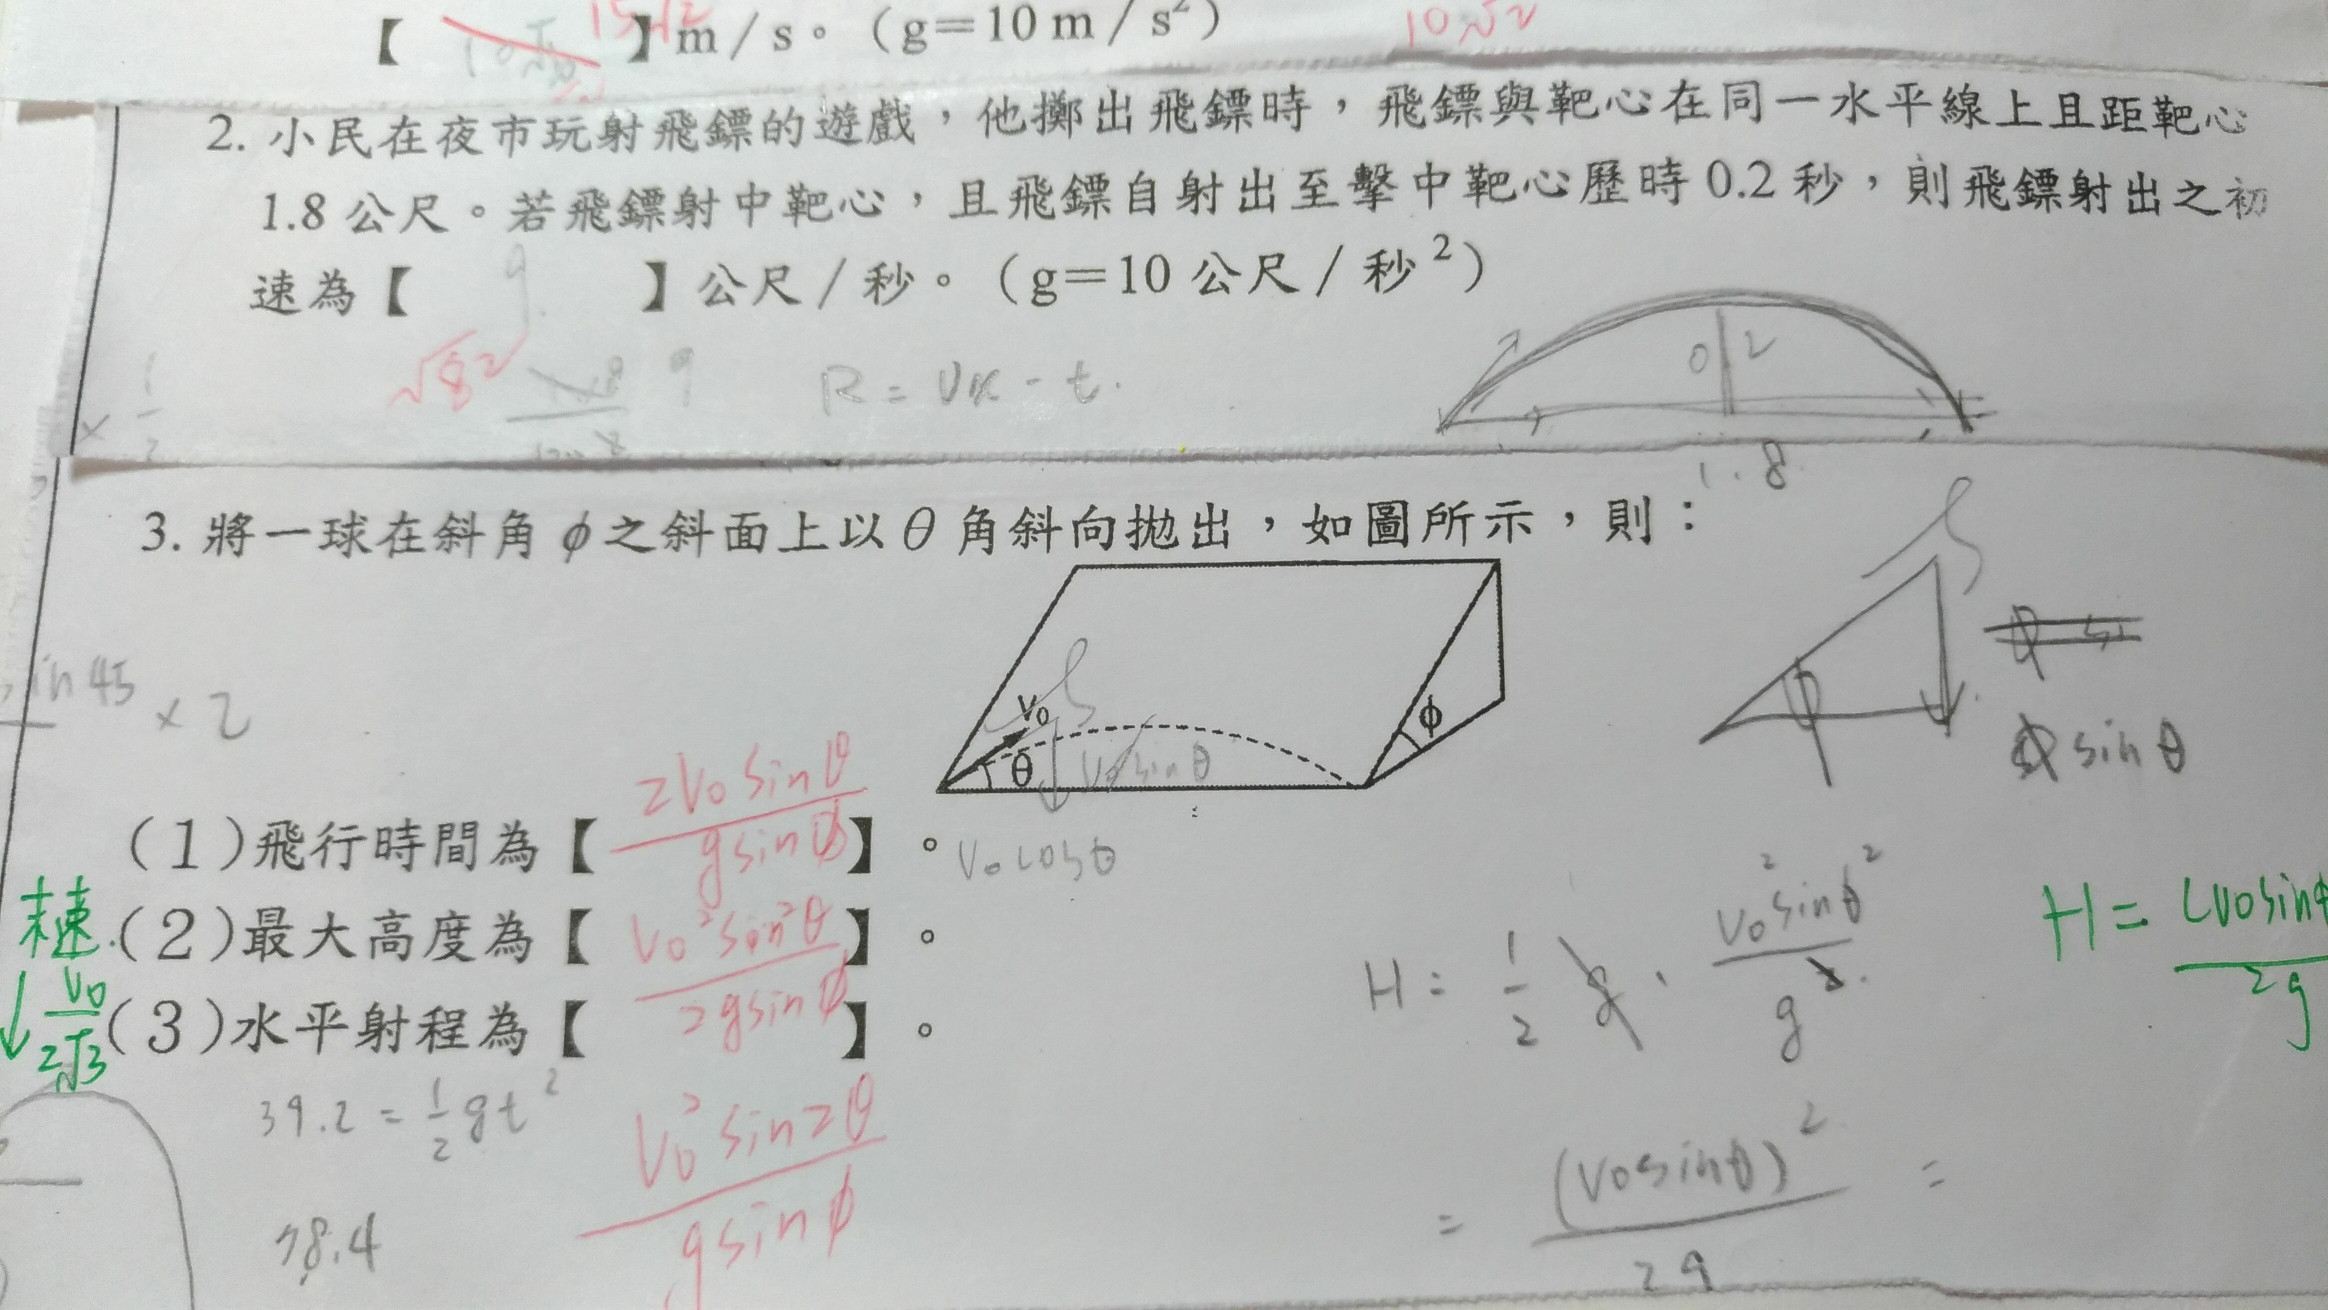 【 】m／s。（g＝10 m／s²）
10√2
2. 小民在夜市玩射飛鏢的遊戲，他擲出飛鏢時，飛鏢與靶心在同一水平線上且距靶心
1.8 公尺。若飛鏢射中靶心，且飛鏢自射出至擊中靶心歷時 0.2 秒，則飛鏢射出之初
速為【 9 】公尺／秒。（g＝10 公尺／秒²）
√82
9
R = Vx - t.
0.2
× 1/2
1.8
3. 將一球在斜角 φ 之斜面上以 θ 角斜向拋出，如圖所示，則：
V₀
θ
φ
φ
V₀ sin θ
V₀ cos θ
sin 45 × 2
φ sin θ
(1)飛行時間為【 2V₀ sin θ / g sin φ 】。
末速
(2)最大高度為【 V₀² sin² θ / 2g sin φ 】。
↓ V₀ / 2√3
(3)水平射程為【 】。
V₀² sin 2θ / g sin φ
39.2 = 1/2 gt²
78.4
H = 1/2 g · V₀² sin θ² / g²
= (V₀ sin θ)² / 2g =
H = (V₀ sin θ / 2g